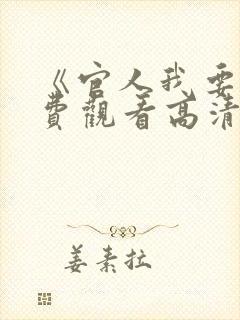 《官人我要
费觀看高清
姜素拉